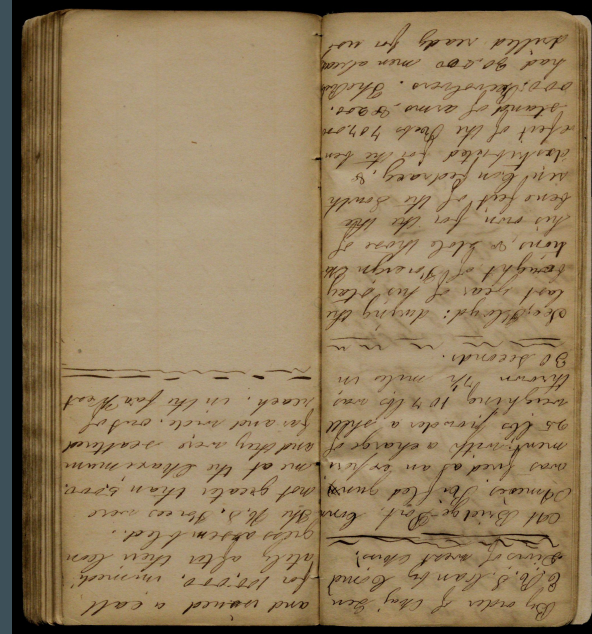 By order of Maj. Gen
E.R.S. Canby Comd
Divis of West Miss.
At Bridge-Port, Conn
Ames' Rifled guns
was fired as an experi
ment with a charge of
25 lbs powder a shell
weighing 107 lbs, was
thrown 7½ mile in
30 seconds.
Sec. Floyd: during the
last year of his stay
bought of Foreign Na
tions, & stole those of
his own, for the
bene fect of the South
ern Con fedracy, &
distributed for the ben
efect of the Rebs 707,000
stand of arms, & 200,
000, Revolvers. The Rebs
had 30,000 men alread
drilled ready for us
and issued a call
for 100,000, immedi
ately after their Con
gress assembled.
The U.S. Forces were
not greater than 5,000.
at the maximum
and they were scattered
far and wide, out of
reach, in the far West